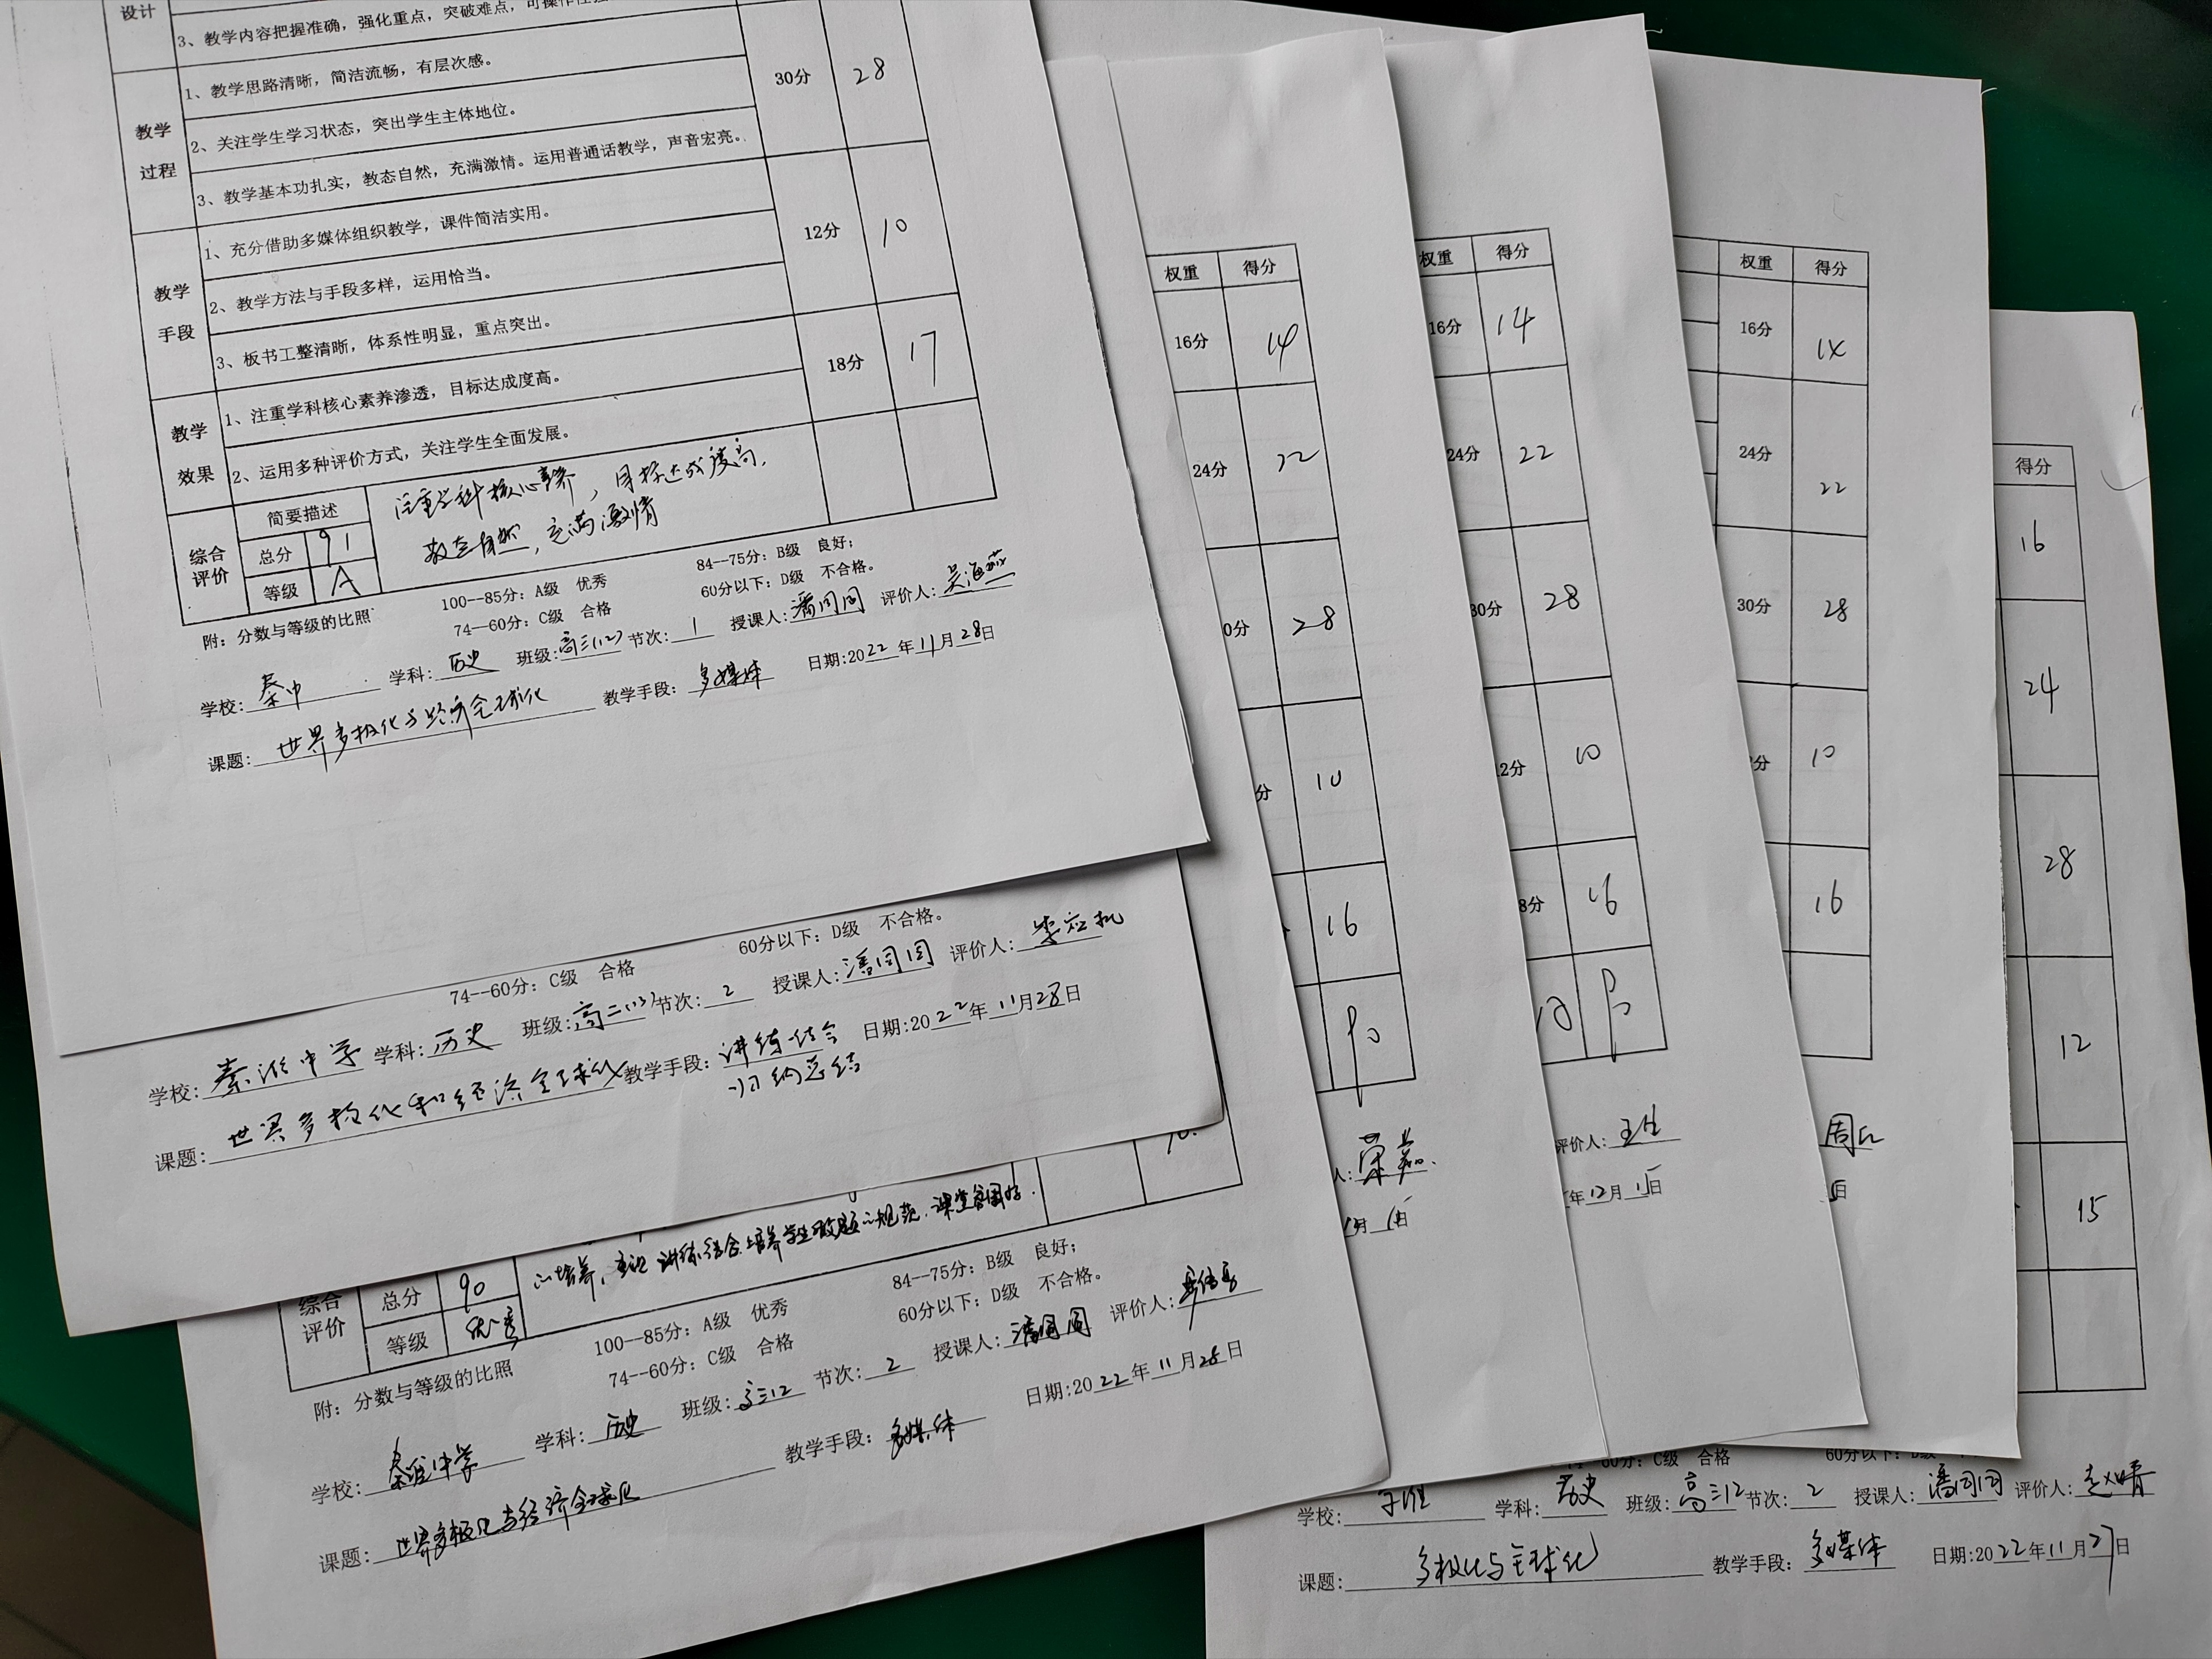 设计
3、教学内容把握准确，强化重点，突破难点，可操作性强
教学
过程
1、教学思路清晰，简洁流畅，有层次感。
2、关注学生学习状态，突出学生主体地位。
3、教学基本功扎实，教态自然，充满激情。运用普通话教学，声音宏亮。
30分 28
教学
手段
1、充分借助多媒体组织教学，课件简洁实用。
2、教学方法与手段多样，运用恰当。
3、板书工整清晰，体系性明显，重点突出。
12分 10
教学
效果
1、注重学科核心素养渗透，目标达成度高。
2、运用多种评价方式，关注学生全面发展。
18分 17
综合
评价
简要描述
总分 91
等级 A
注重学科核心素养，目标达成度高，
教态自然，充满激情
附：分数与等级的比照
100--85分：A级 优秀
84--75分：B级 良好；
74--60分：C级 合格
60分以下：D级 不合格。
学校：秦中 学科：历史 班级：高三(12) 节次：1 授课人：潘同同 评价人：吴海燕
课题：世界多极化与经济全球化 教学手段：多媒体 日期:2022年11月28日
74--60分：C级 合格
60分以下：D级 不合格。
学校：秦淮中学 学科：历史 班级：高二(13) 节次：2 授课人：潘同同 评价人：
课题：世界多极化和经济全球化 教学手段：讲练结合 日期:2022年11月28日
归纳总结
综合
评价
总分 90
等级 优秀
培养，讲练结合培养学生规范，课堂氛围好.
附：分数与等级的比照
100--85分：A级 优秀
84--75分：B级 良好；
74--60分：C级 合格
60分以下：D级 不合格。
学校：秦淮中学 学科：历史 班级：高三12 节次：2 授课人：潘同同 评价人：
课题：世界多极化与经济全球化 教学手段：多媒体 日期:2022年11月28日
权重 得分
16分 14
24分 22
0分 28
分 10
16
90
人：荣嘉.
月1日
权重 得分
16分 14
24分 22
30分 28
12分 10
8分 16
评价人：王生
年12月1日
权重 得分
16分 14
24分 22
30分 28
分 10
16
日
得分
16
24
28
12
15
60分：C级 合格
60分以下：D级
学校： 学科：历史 班级：高三12 节次：2 授课人：潘同同 评价人：赵晴
课题：多极化与全球化 教学手段：多媒体 日期:2022年11月27日